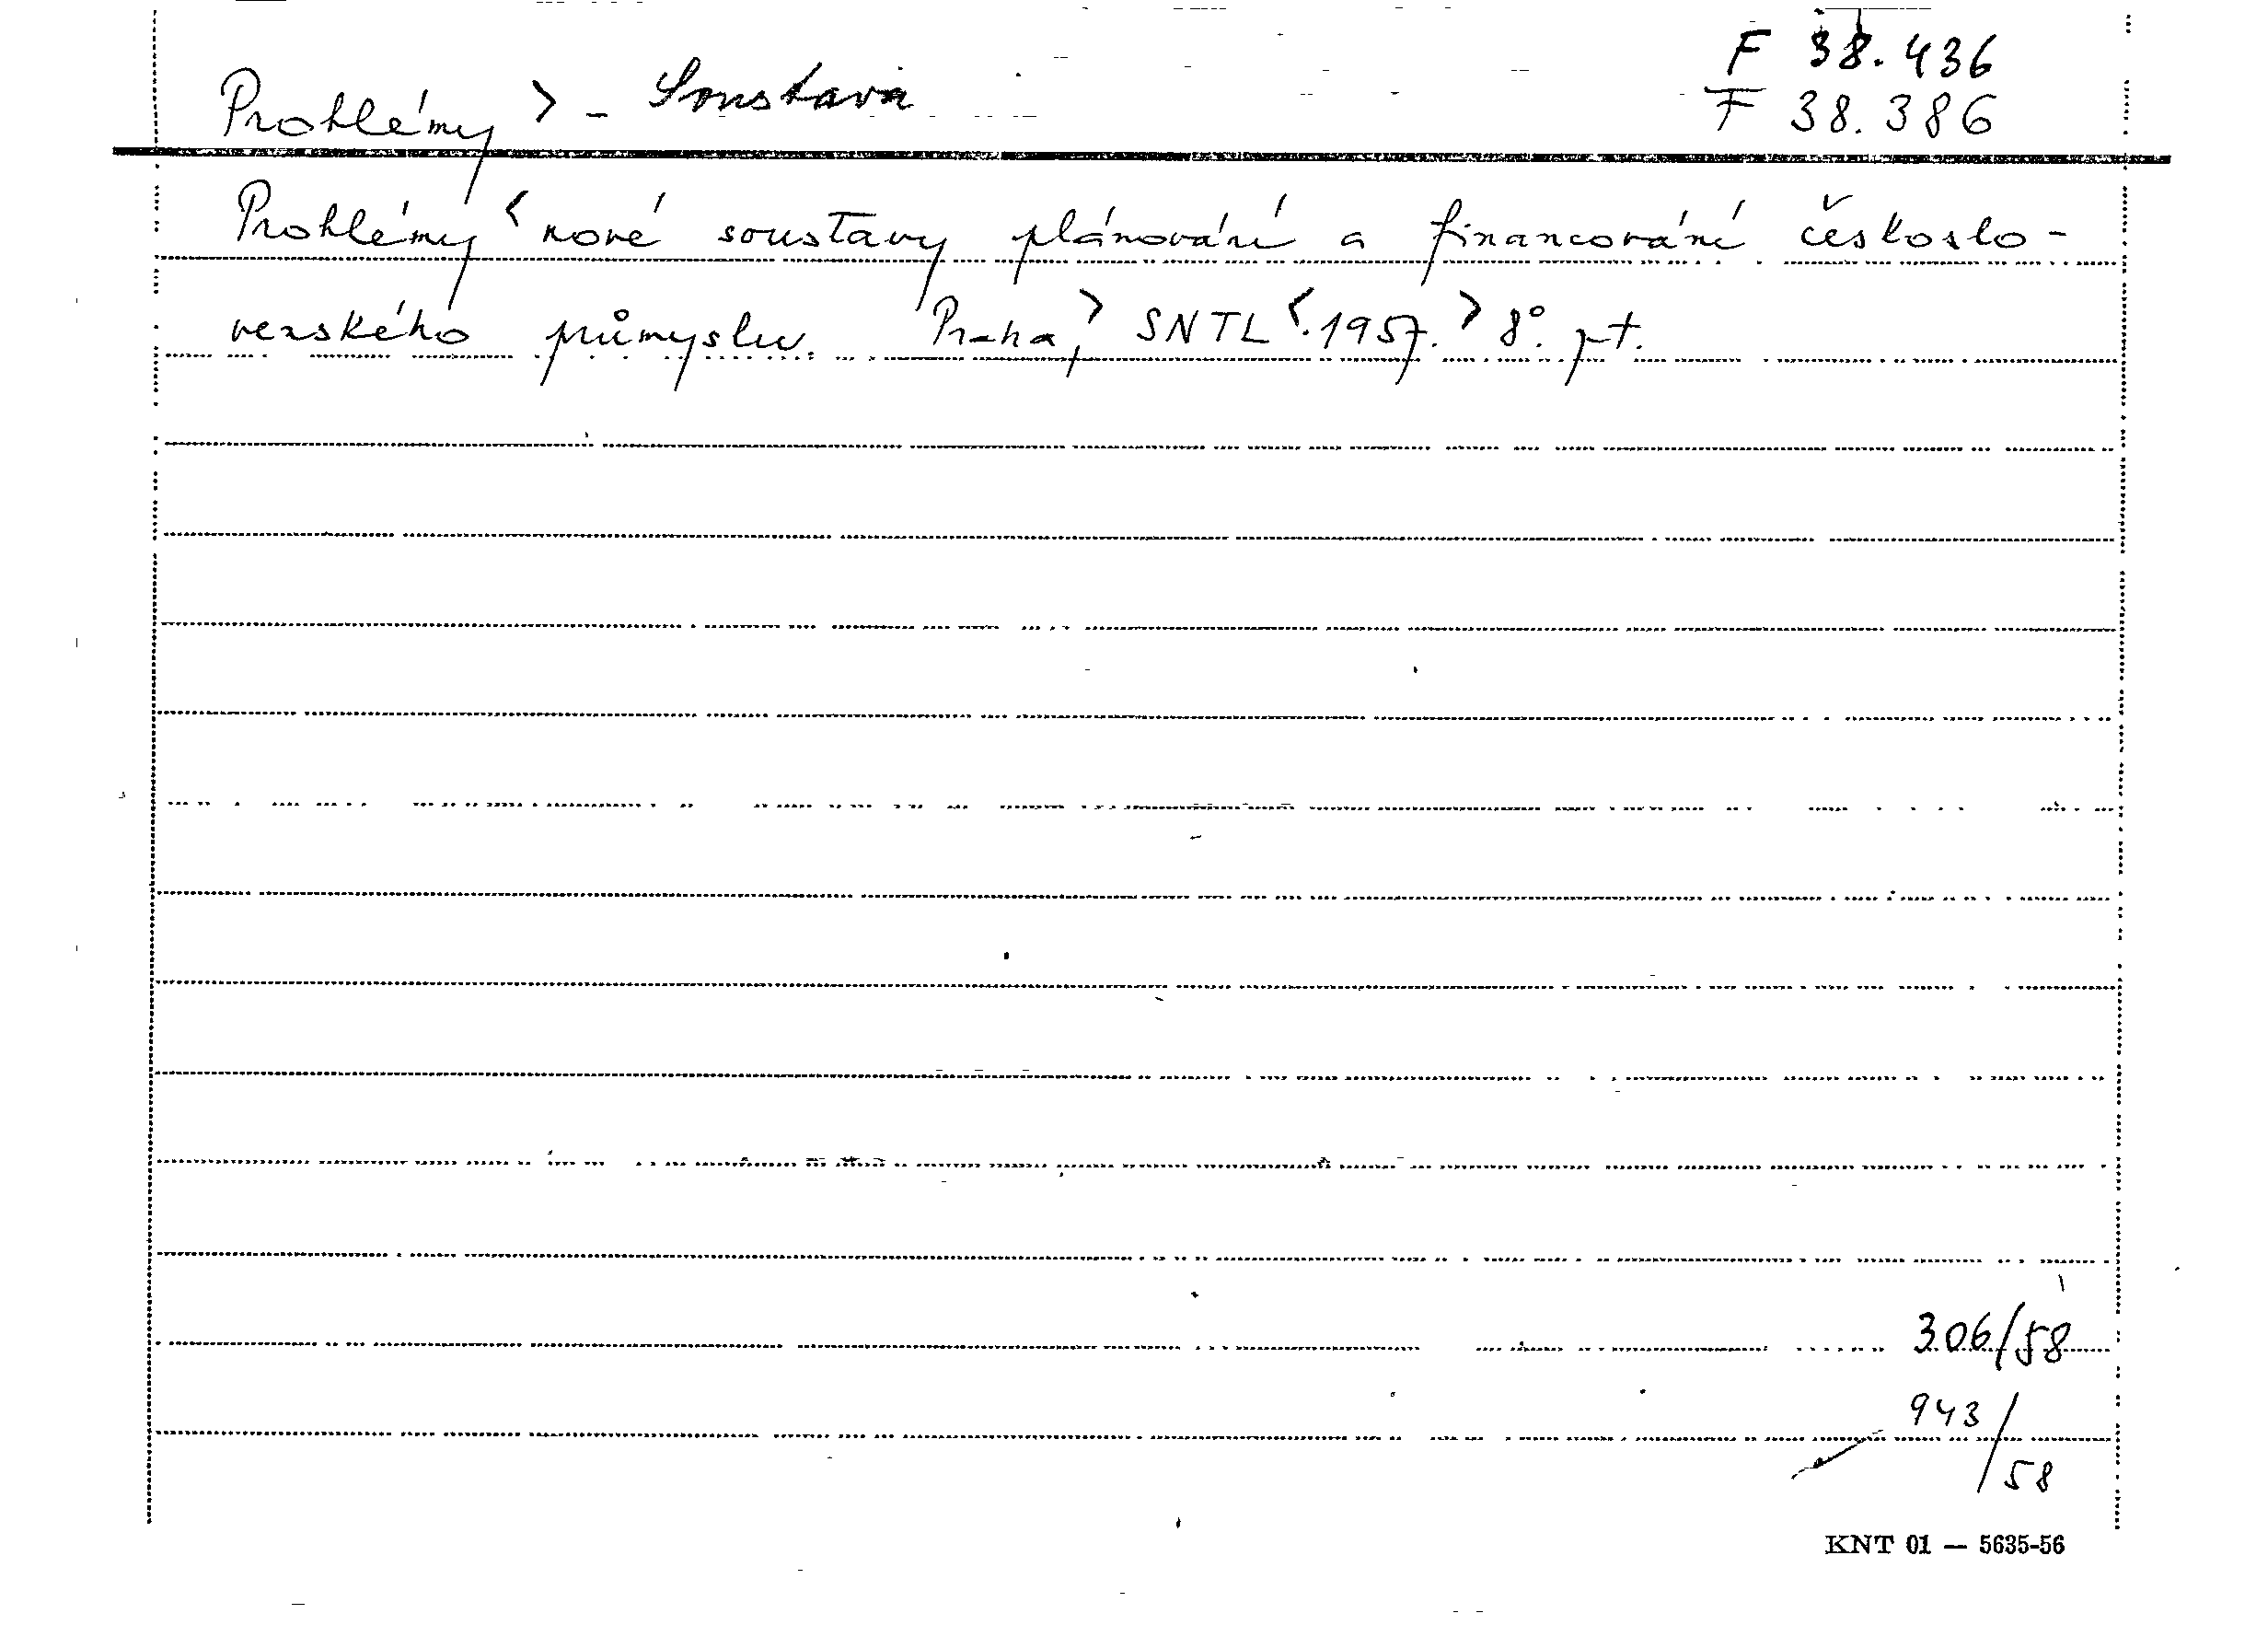 F 38.436
Problémy > - Soustava
F 38.386
Problémy < nové soustavy plánování a financování českoslo-
venského průmyslu. Praha, > SNTL <. 1957. > 8°. pt.
306/58
943/
58
KNT 01 — 5635-56